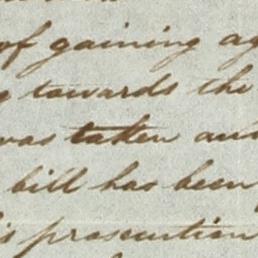 of gaining ag
towards the
was taken and
bill has been
is prosecution